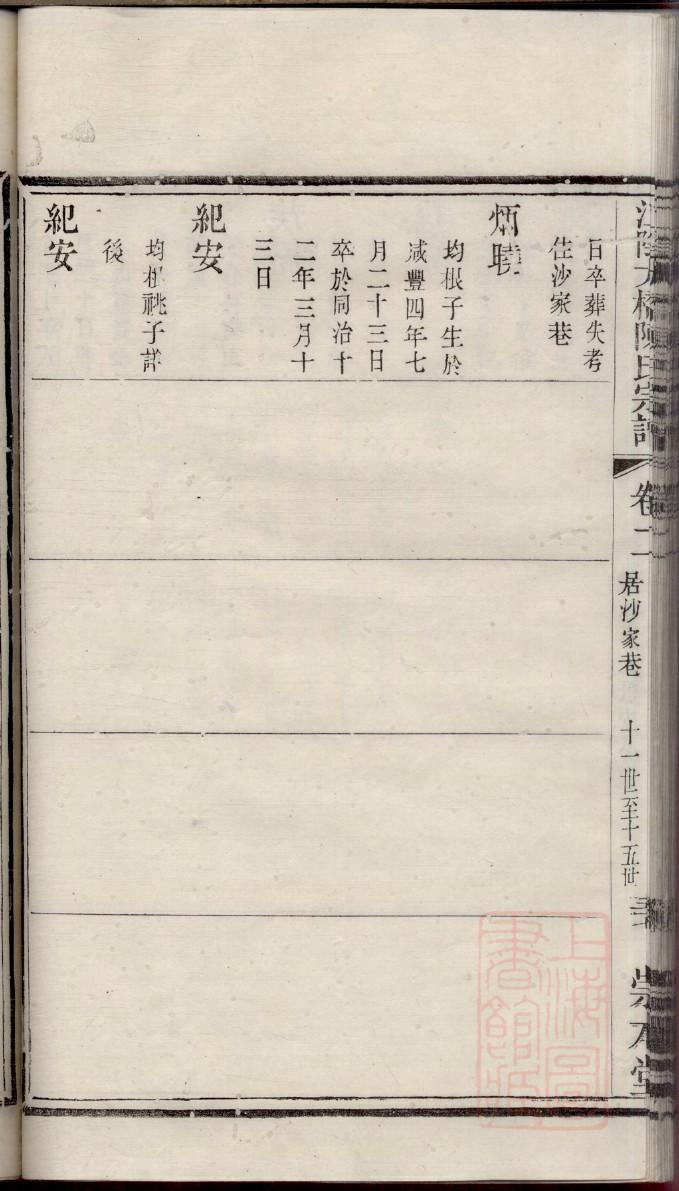 江陰大橋陳氏宗譜
卷二
居沙家巷
十一世至十五世
崇本堂
日卒葬失考
住沙家巷
炳曉
均根子生於
咸豐四年七
月二十三日
卒於同治十
二年三月十
三日
紀安
均根祧子詳
後
紀安
上海圖
書館藏